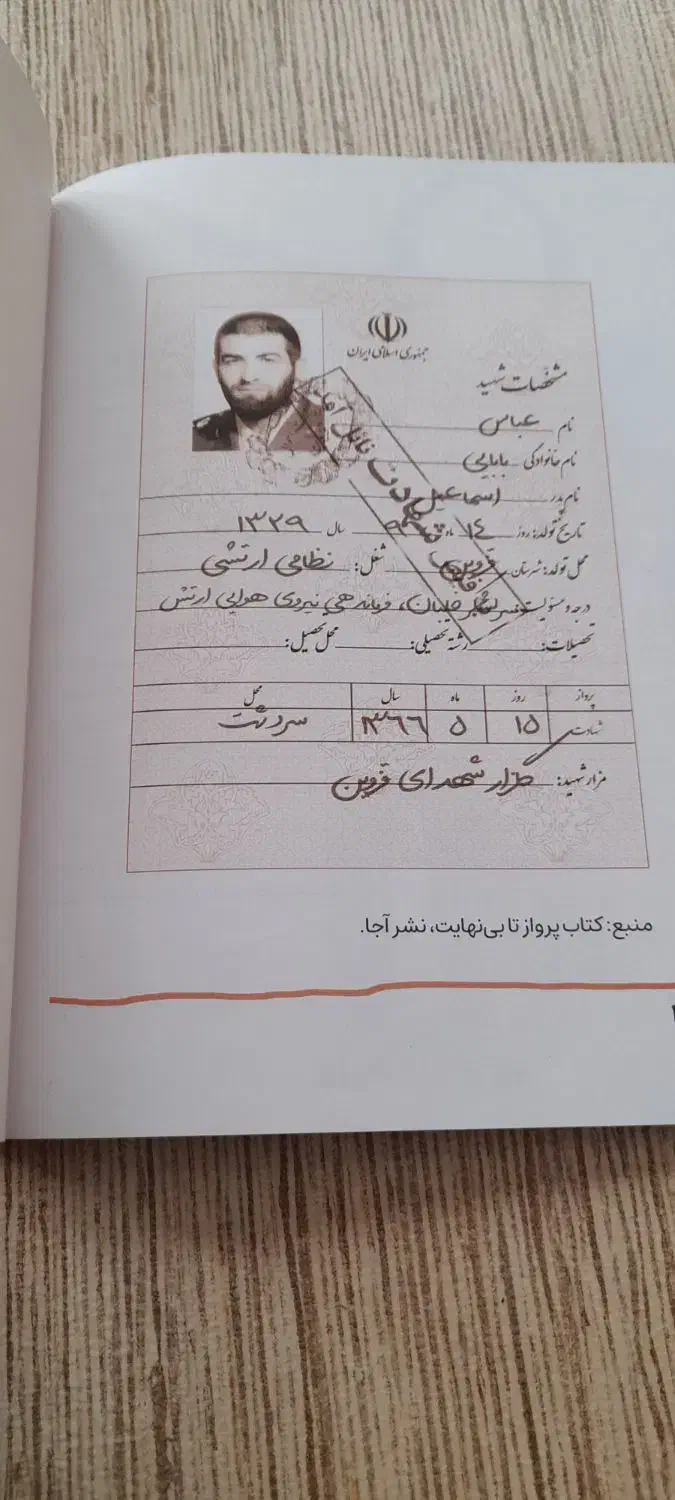 جمهوری اسلامی ایران
مشخصات شهید
نام عباس
نام خانوادگی بابایی
نام پدر اسماعیل
تاریخ تولد: روز ۱۴ ماه سال ۱۳۲۹
محل تولد: شهرستان قزوین شغل: نظامی ارتشی
درجه و مسئولیت خلبان، فرماندهی نیروی هوایی ارتش
تحصیلات: رشته تحصیلی: محل تحصیل:
پرواز روز ماه سال محل
شهادت ۱۵ ۵ ۱۳۶۶ سردشت
مزار شهید: گلزار شهدای قزوین
نائل آمد
منبع: کتاب پرواز تا بی‌نهایت، نشر آجا.